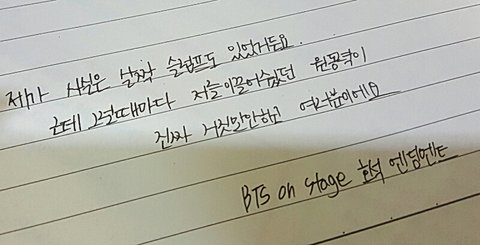 제가 사실은 살짝 슬럼프도 있었거든요.
근데 그럴때마다 저를이끌어주셨던 원동력이
진짜 거짓말안하고 여러분이에요
BTS on stage 호석 엔딩멘트